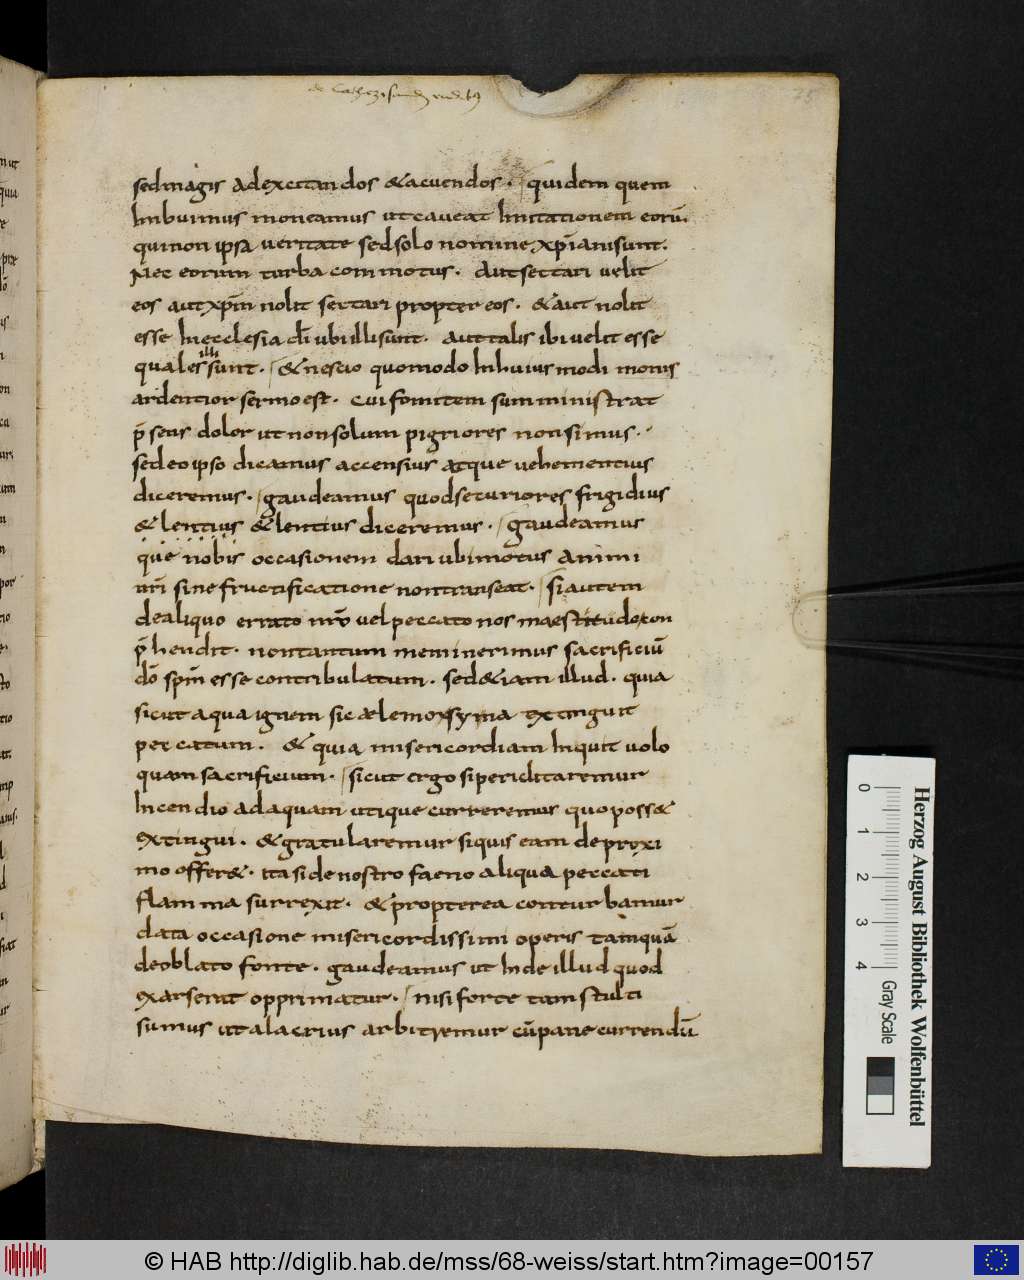 de Cathezisandis rudibus
75
sed magis ad excitandos & acuendos. quidem quem
Inbuimus moneamus ut caueat Imitationem eorū.
qui non ipsa ueritate sed solo nomine xp̄iani sunt.
Nec eorum turba commotus. Aut sectari uelit
eos aut xp̄m nolit sectari propter eos. & aut nolit
esse In ecclesia dī ubi illi sunt. aut talis ibi uelit esse
quales illi sunt. & nescio quomodo In huiusmodi monis
ardentior sermo est. cui fomitem sumministrat
p̄sens dolor ut non solum pigriores non simus.
sed eo ipso dicamus accensius atque uehementius
diceremus. gaudeamus quod securiores frigidius
& lentius & lentius diceremus. gaudeamus
que nobis occasionem dari ubi motus animi
nr̄i sine fructificatione non transeat. si autem
de aliquo errato nr̄o uel peccato nos maestitudo con
p̄hendit. non tantum meminerimus sacrificiū
dō sp̄m esse contribulatum. sed & iam illud. quia
sicut aqua ignem sic ælemosyma extinguit
peccatum. & quia misericordiam Inquit uolo
quam sacrificium. sicut ergo si periclitaremur
Incendio ad aquam utique curreremus quo poss&
extingui. & gratularemur si quis eam de proxi
mo offer&. ita si de nostro faeno aliqua peccati
flamma surrexit. & propterea conturbamur
data occasione misericordissimi operis tamquā
de oblato fonte. gaudeamus ut Inde illud quod
exarserat opprimatur. nisi forte tam stulti
sumus ut alacrius arbitremur cū pane currendū
Herzog August Bibliothek Wolfenbüttel
0 1 2 3 4 Gray Scale
© HAB http://diglib.hab.de/mss/68-weiss/start.htm?image=00157